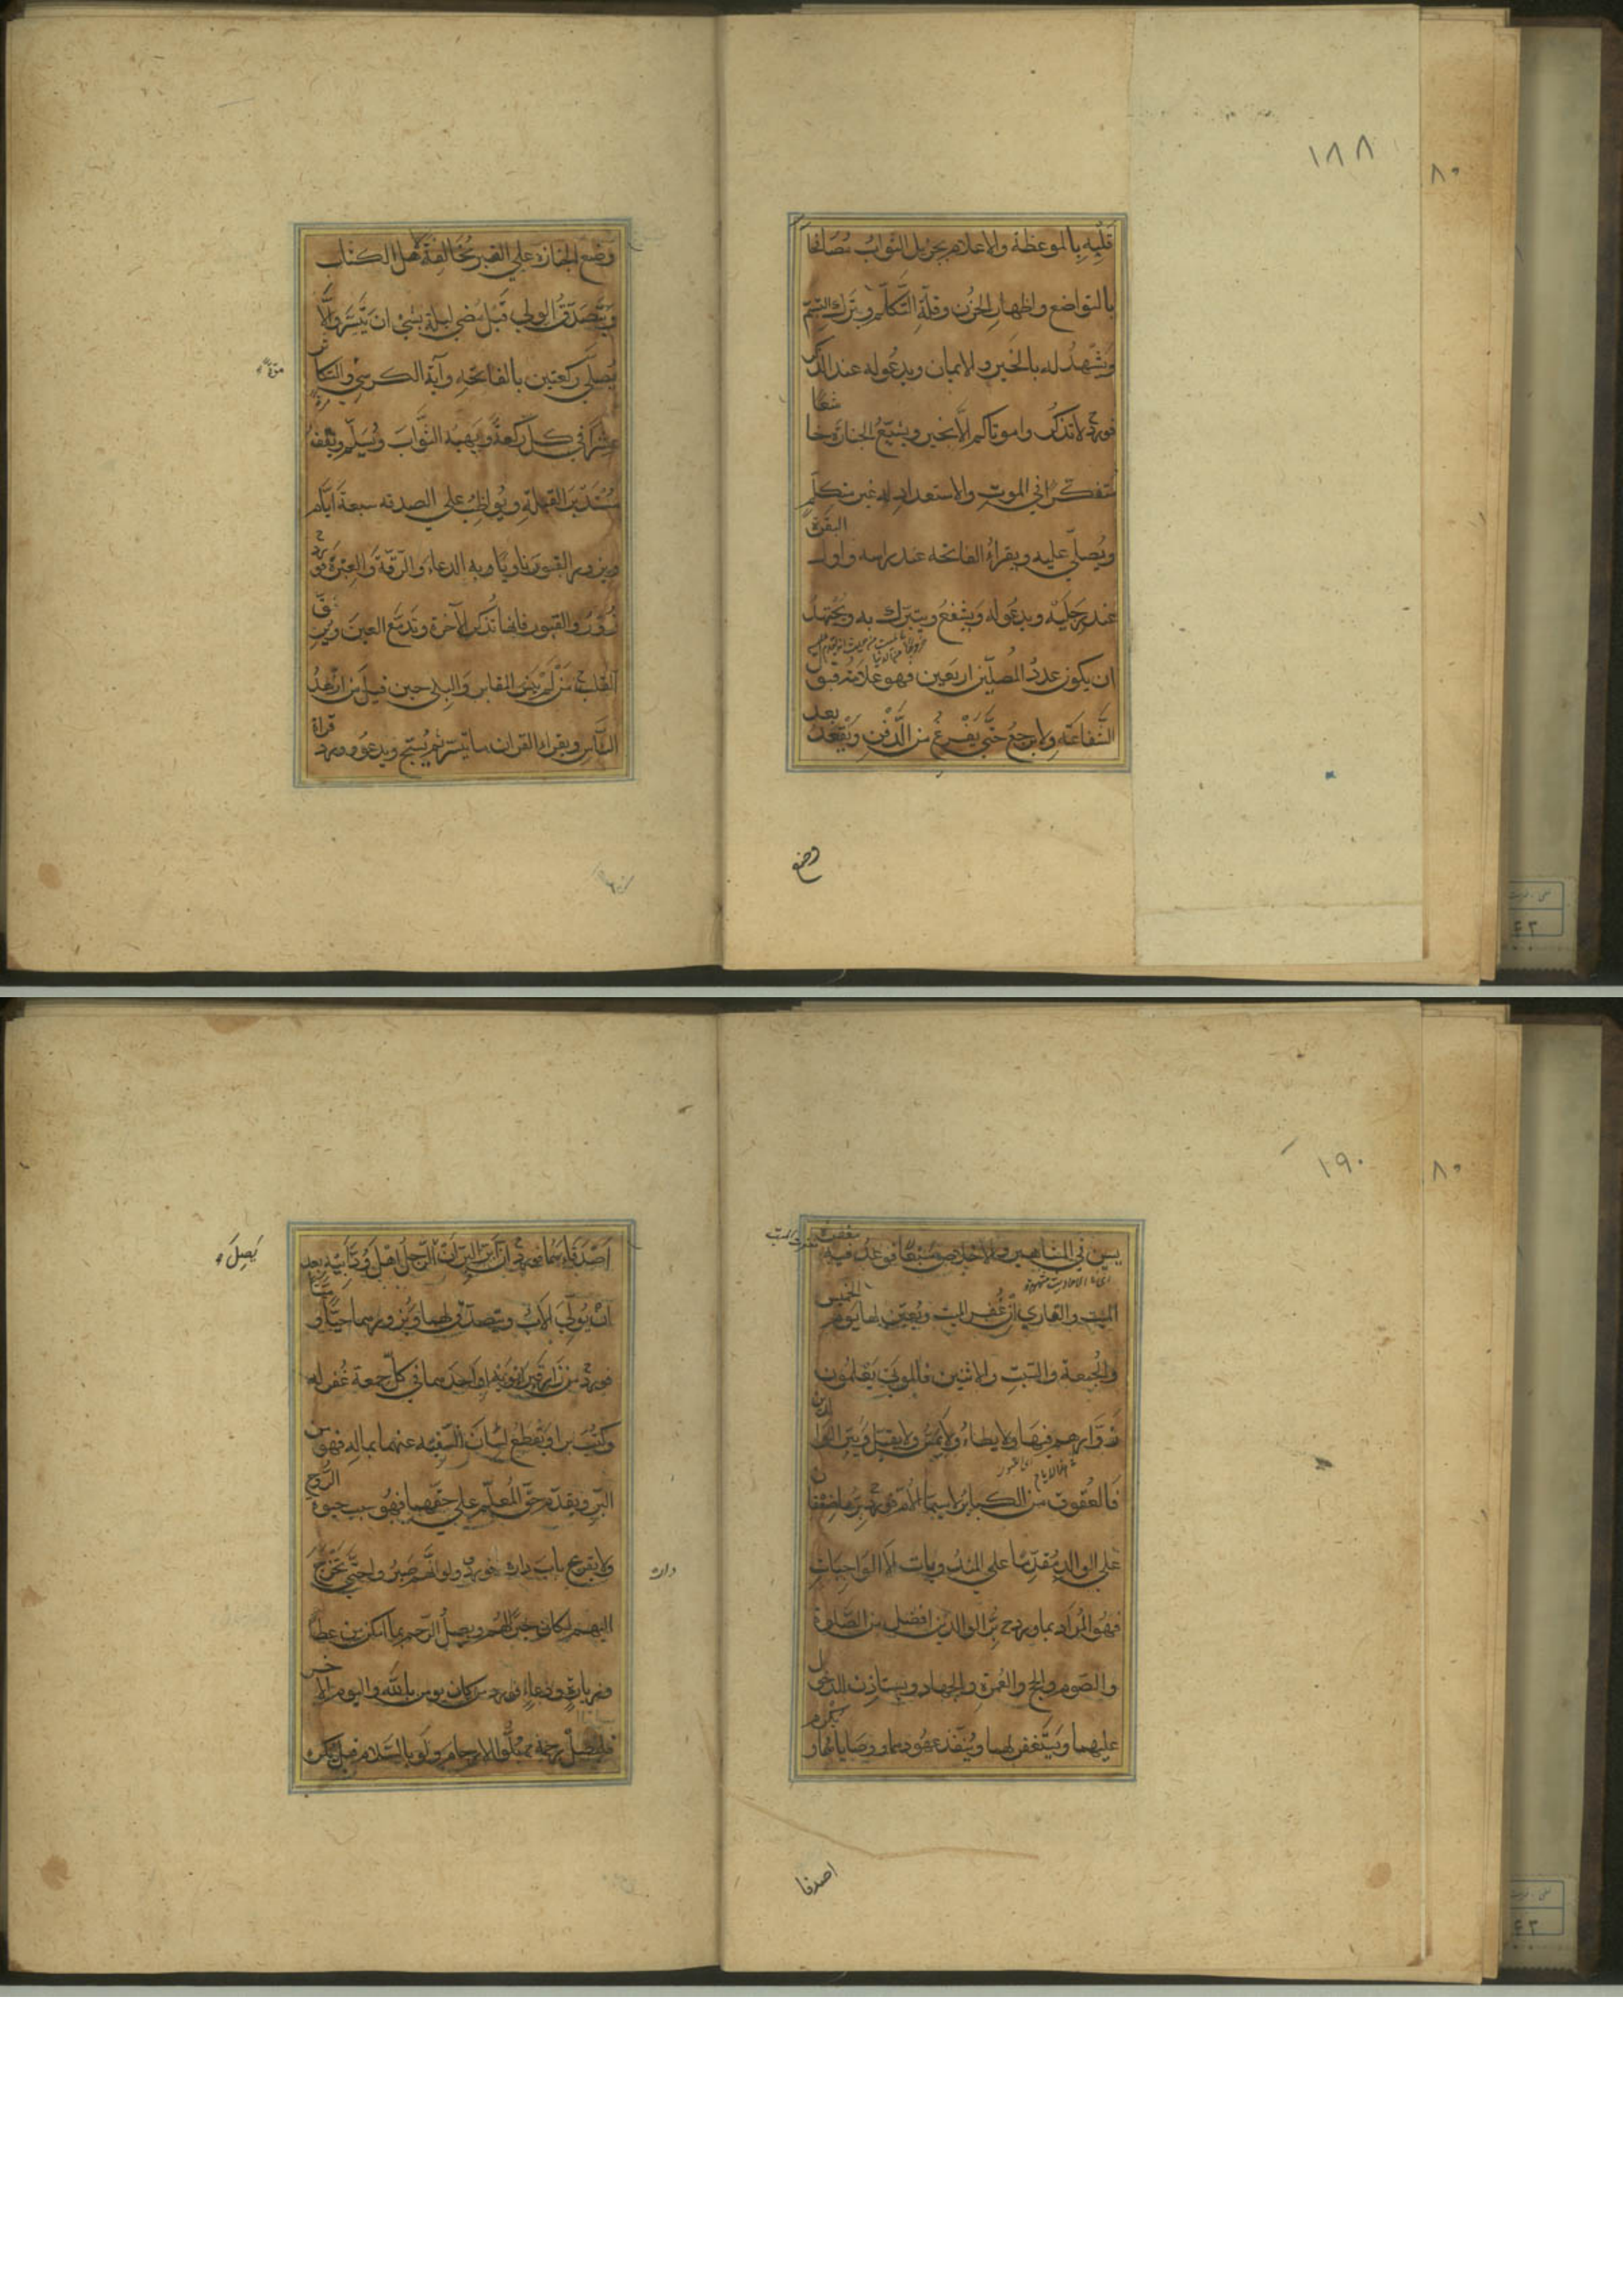 ١٨٨
٨٠
قلبه بالموعظة والاعلام بجزيل الثواب مصافحا
بالتواضع واظهار الحزن وقلّة التكلّم وترك التبسّم
ويشهد له بالخير والايمان ويدعو له عند الذكر
فورد لا تذكروا موتاكم الّا بخير ويشيّع الجنازة خاشعا
متفكّرا في الموت والاستعداد له غير متكلّم
ويصلّي عليه ويقراء الفاتحة عند راسه واول البقرة
عند رجليه ويدعو له ويشفع ويتبرّك به ويجتهد
ان يكون عدد المصلّين اربعين فهو علامة قبول
الشّفاعة ولا يرجع حتّى يفرغ من الدّفن ويقعد بعد
وضع
وضع الجنازة علي القبر مخالفة لاهل الكتاب
ويتصدّق الولي قبل مضي ليلة بشئ ان يتيسّر والّا
يصلّي ركعتين بالفاتحة وآية الكرسي والتكاثر
عشرا في كل ركعة ويهبه الثّواب ويسلّم ويقف
مستدبر القبلة ويواظب علي الصدقة سبعة ايّام
ويزور القبور ناويا به الدعاء والرّقّة والعبرة فورد
زوروا القبور فانها تذكر الآخرة وتدمع العين وترقّ
القلب من لم ينس المقابر والبلي حين قيل من ازهد
النّاس ويقراء القران ما تيسّر ثم يسبّح ويدعو وورد قراة
١٩٠
٨٠
يس في المشاهير والاخلاص سبعا فوعد فيه مغفرة
الميت والقاري ان غفر الميت ويعيّن لها يوم الخميس
والجمعة والسّبت والاثنين فالموتي يعلمون
زوّارهم فيها ولا يطاء ولا يمسّ ولا يقبّل ويبرّ الوالدين
فالعقوق من الكباير لا سيما الامّ فورد برّها ضعفان
علي الوالد مقدّما علي المندوبات لا الواجبات
فهو المراد بما ورد برّ الوالدين افضل من الصّلوة
والصّوم والحج والعمرة والجهاد ويستاذن للدخول
عليهما ويستغفر لهما وينفّذ عهودهما ووصاياهما ويكرم
اصدقا
اصدقاءهما فورد ان من ابرّ البرّ ان يصل الرّجل اهل ودّ ابيه بعد
يصل
ان يولّي الاب ويتصدّق لهما ويزورهما حيّا وميّتا
فورد من زار قبر ابويه او احدهما في كلّ جمعة غفر له
وكتب برا ويقطع لسان السّفيه عنهما بماله فهو من
البرّ ويقدّم حقّ المعلّم علي حقّهما فهو سبب حيوة الرّوح
ولا يقرع باب داره فورد ولو انّهم صبروا حتّي تخرج
داره
اليهم لكان خيرا لهم ويصل الرّحم بما امكن من عطا
وزيارة ودعاء فورد من كان يومن بالله واليوم الاخر
فليصل رحمه بلّوا الارحام ولو بالسّلام